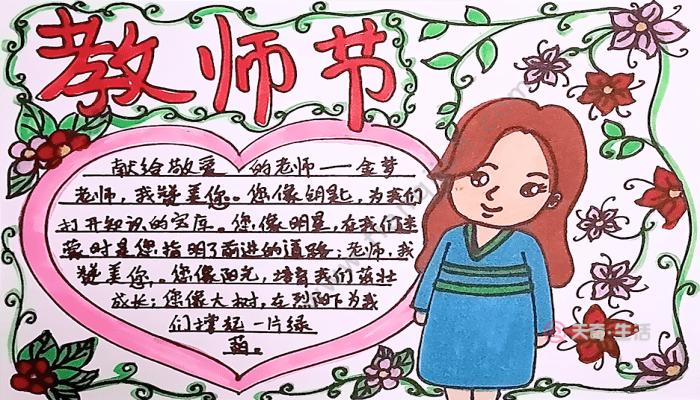 教师节
献给敬爱的老师——金梦
老师,我赞美您。您像钥匙,为我们
打开知识的宝库。您,像明星,在我们迷
蒙时是您,指明了前进的道路;老师,我
赞美您,。您像阳光,培育我们茁壮
成长;您像大树,在烈阳下为我
们撑起一片绿
荫。
天奇·生活